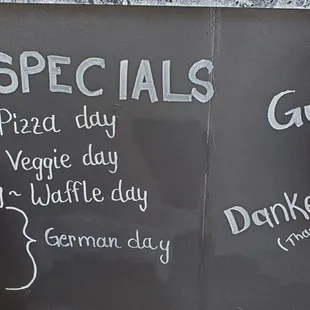 SPECIALS
Pizza day
Veggie day
~ Waffle day
German day